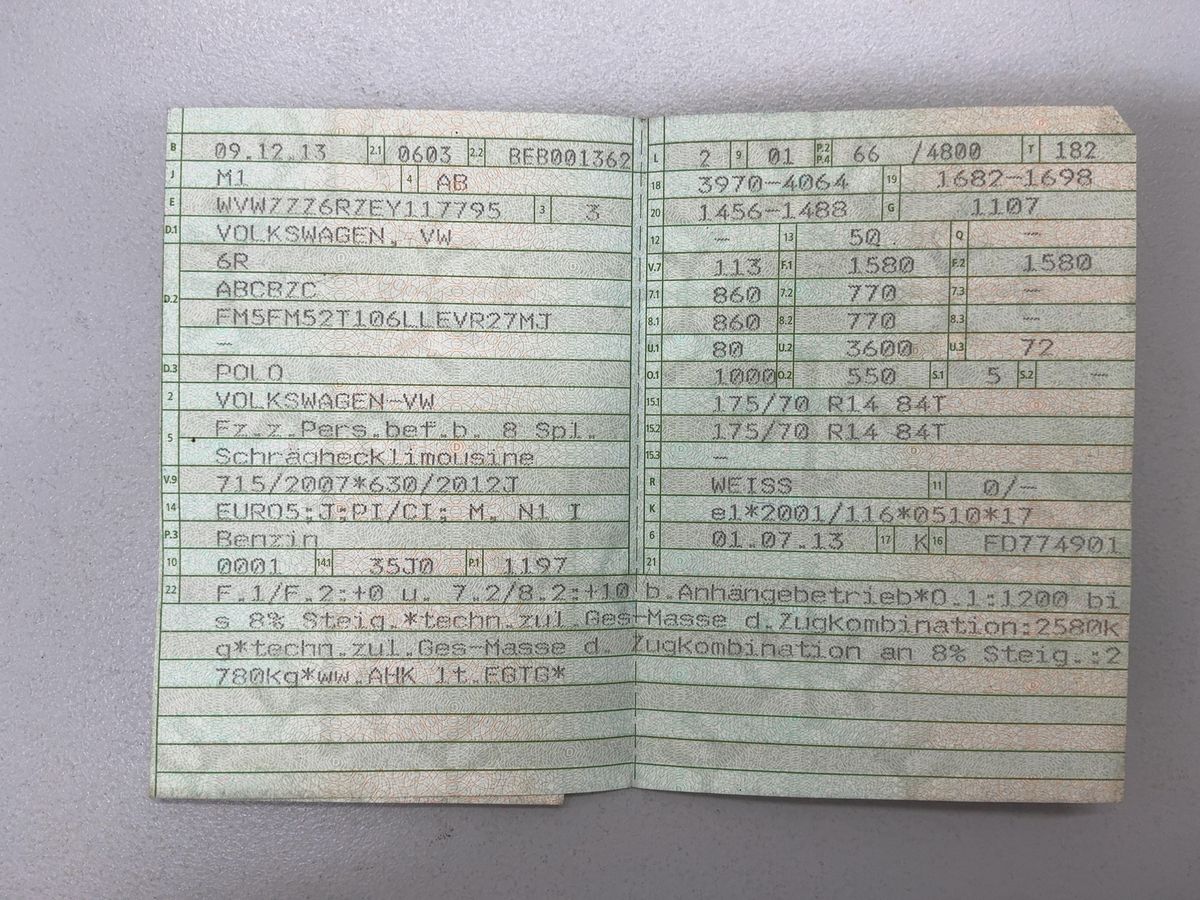 B 09.12.13 2.1 0603 2.2 BEB001362
J M1 4 AB
E WVWZZZ6RZEY117795 3 3
D.1 VOLKSWAGEN, VW
6R
D.2 ABCBZC
FM5FM52T106LLEVR27MJ
—
D.3 POLO
2 VOLKSWAGEN-VW
5 Fz.z.Pers.bef.b. 8 Spl.
Schräghecklimousine
V.9 715/2007*630/2012J
14 EURO5;J;PI/CI; M, N1 I
P.3 Benzin
10 0001 14.1 35J0 P.1 1197
L 2 9 01 P.2 P.4 66 /4800 T 182
18 3970-4064 19 1682-1698
20 1456-1488 G 1107
12 — 13 50 Q —
V.7 113 F.1 1580 F.2 1580
7.1 860 7.2 770 7.3 —
8.1 860 8.2 770 8.3 —
U.1 80 U.2 3600 U.3 72
O.1 1000 O.2 550 S.1 5 S.2 —
15.1 175/70 R14 84T
15.2 175/70 R14 84T
15.3 —
R WEISS 11 0/-
K e1*2001/116*0510*17
6 01.07.13 17 K 16 FD774901
21
22 F.1/F.2:+0 u. 7.2/8.2:+10 b.Anhängebetrieb*O.1:1200 bi
s 8% Steig.*techn.zul.Ges-Masse d.Zugkombination:2580k
g*techn.zul.Ges-Masse d. Zugkombination an 8% Steig.:2
780kg*ww.AHK lt.EGTG*